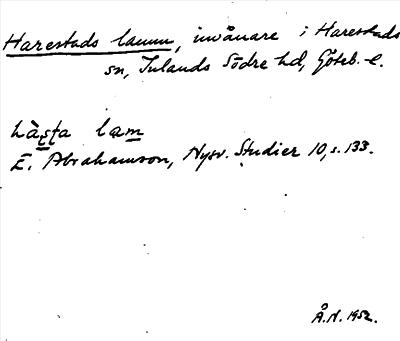 Harestads lamm, invånare i Harestads
sn, Inlands Södre hd, Göteb. l.
hàs̠t̠a lam̠
E. Abrahamson, Nysv. Studier 10, s. 133.
Å.H. 1952.